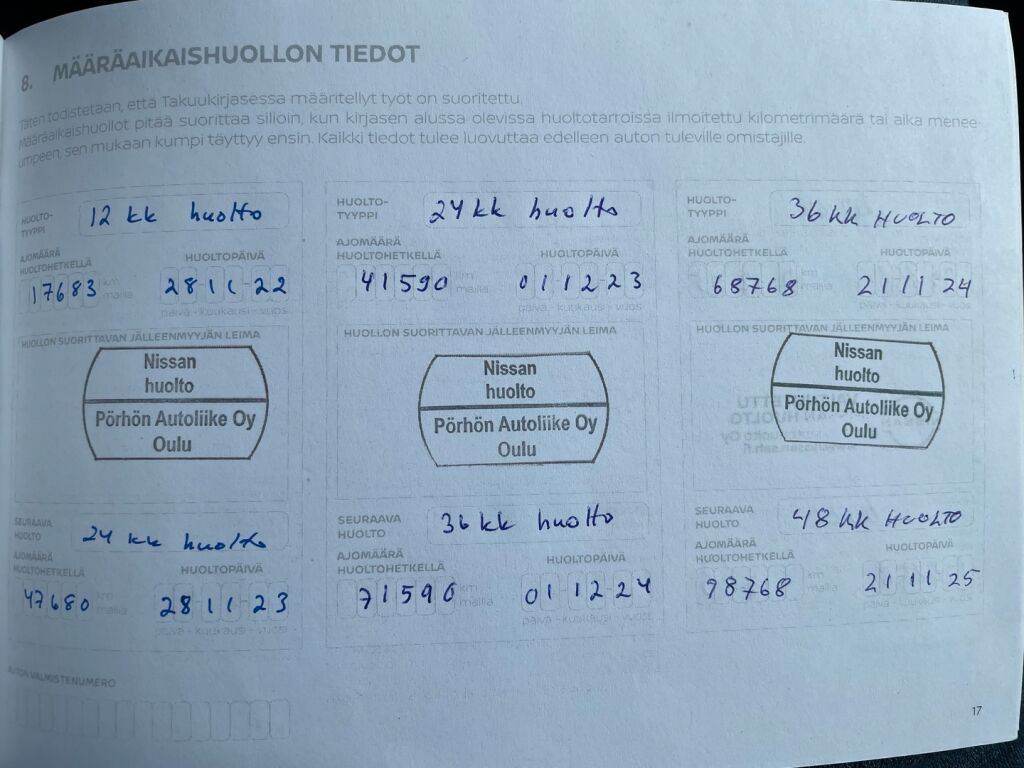 8. MÄÄRÄAIKAISHUOLLON TIEDOT
Täten todistetaan, että Takuukirjasessa määritellyt työt on suoritettu.
Määräaikaishuollot pitää suorittaa silloin, kun kirjasen alussa olevissa huoltotarroissa ilmoitettu kilometrimäärä tai aika menee
umpeen, sen mukaan kumpi täyttyy ensin. Kaikki tiedot tulee luovuttaa edelleen auton tuleville omistajille.
HUOLTO-
TYYPPI
12 kk huolto
AJOMÄÄRÄ
HUOLTOHETKELLÄ
HUOLTOPÄIVÄ
17683 km
mailia
28 11 22
päivä - kuukausi - vuosi
HUOLLON SUORITTAVAN JÄLLEENMYYJÄN LEIMA
Nissan
huolto
Pörhön Autoliike Oy
Oulu
SEURAAVA
HUOLTO
24 kk huolto
AJOMÄÄRÄ
HUOLTOHETKELLÄ
HUOLTOPÄIVÄ
47680 km
mailia
28 11 23
päivä - kuukausi - vuosi
HUOLTO-
TYYPPI
24 kk huolto
AJOMÄÄRÄ
HUOLTOHETKELLÄ
HUOLTOPÄIVÄ
41590 km
mailia
01 12 23
päivä - kuukausi - vuos
HUOLLON SUORITTAVAN JÄLLEENMYYJÄN LEIMA
Nissan
huolto
Pörhön Autoliike Oy
Oulu
SEURAAVA
HUOLTO
36 kk huolto
AJOMÄÄRÄ
HUOLTOHETKELLÄ
HUOLTOPÄIVÄ
71590 km
mailia
01 12 24
päivä - kuukausi - vuos
HUOLTO-
TYYPPI
36 KK HUOLTO
AJOMÄÄRÄ
HUOLTOHETKELLÄ
HUOLTOPÄIVÄ
68768 km
mailia
21 11 24
päivä - kuukausi - vuos
HUOLLON SUORITTAVAN JÄLLEENMYYJÄN LEIMA
Nissan
huolto
Pörhön Autoliike Oy
Oulu
SEURAAVA
HUOLTO
48 KK HUOLTO
AJOMÄÄRÄ
HUOLTOHETKELLÄ
HUOLTOPÄIVÄ
98768 km
mailia
21 11 25
päivä - kuukausi - vuos
AUTON VALMISTENUMERO
17